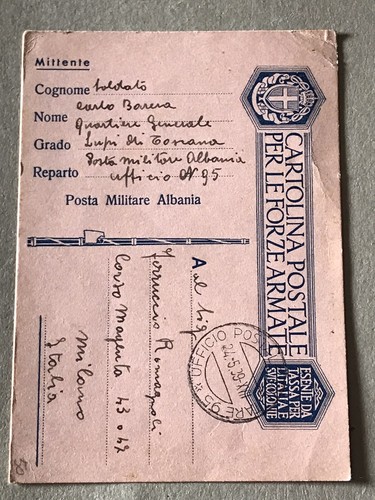 Mittente
Cognome Soldato
Carlo Barera
Nome Quartiere Generale
Grado Lupi di Toscana
Posta Militare Albania
Reparto Ufficio N 95
Posta Militare Albania
A al Sig.
Ferruccio Romagnoli
Corso Magenta 43 o 42
Milano
Italia
CARTOLINA POSTALE
PER LE FORZE ARMATE
ESENTE DA
TASSA PER
L'ITALIA E
SUE COLONIE
UFFICIO POSTA
ARE 95
24.5.39.XVII